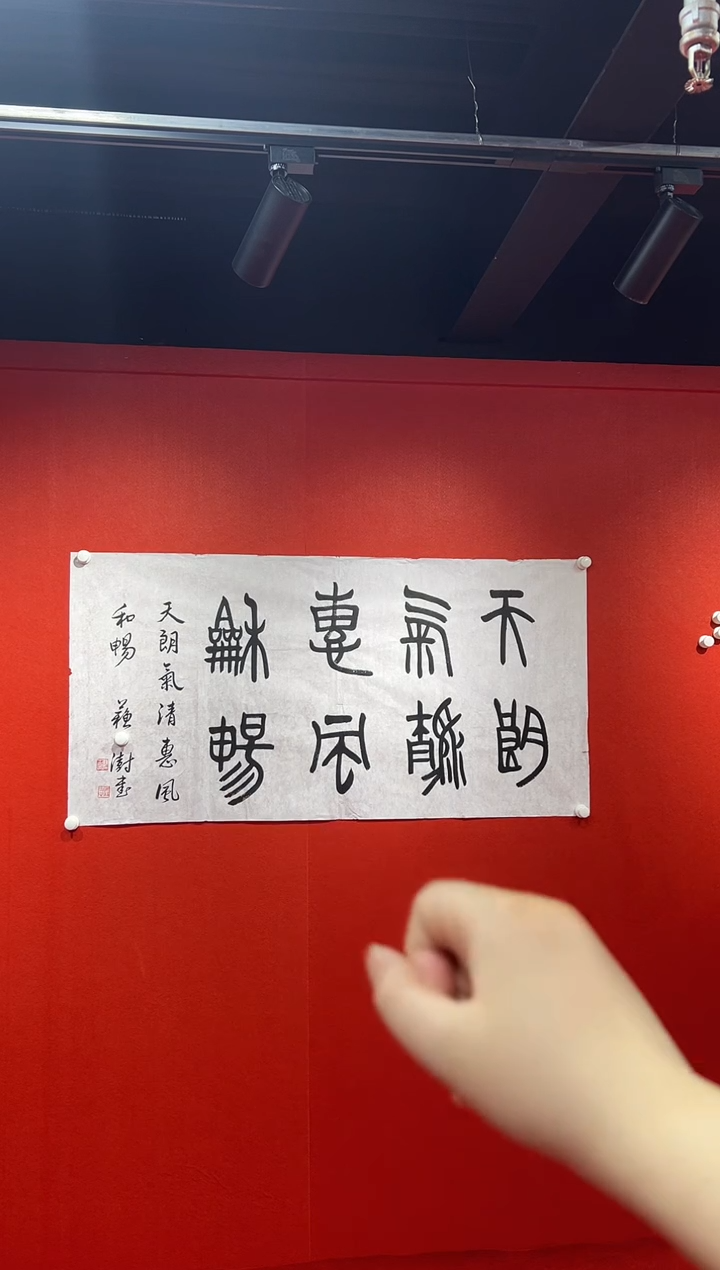 天朗
氣清
惠風
龢暢
天朗氣清惠風
和暢 蘇澍書